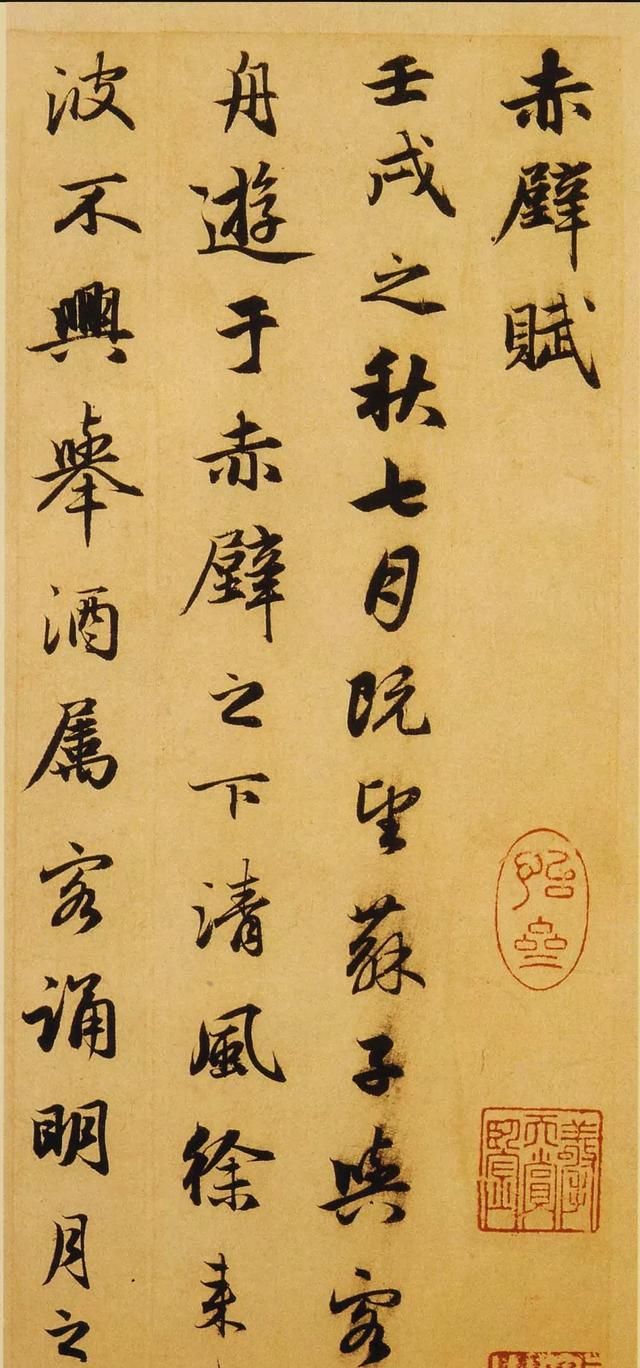 赤壁賦
壬戌之秋七月既望蘇子與客
舟遊于赤壁之下清風徐来
波不興舉酒属客誦明月之